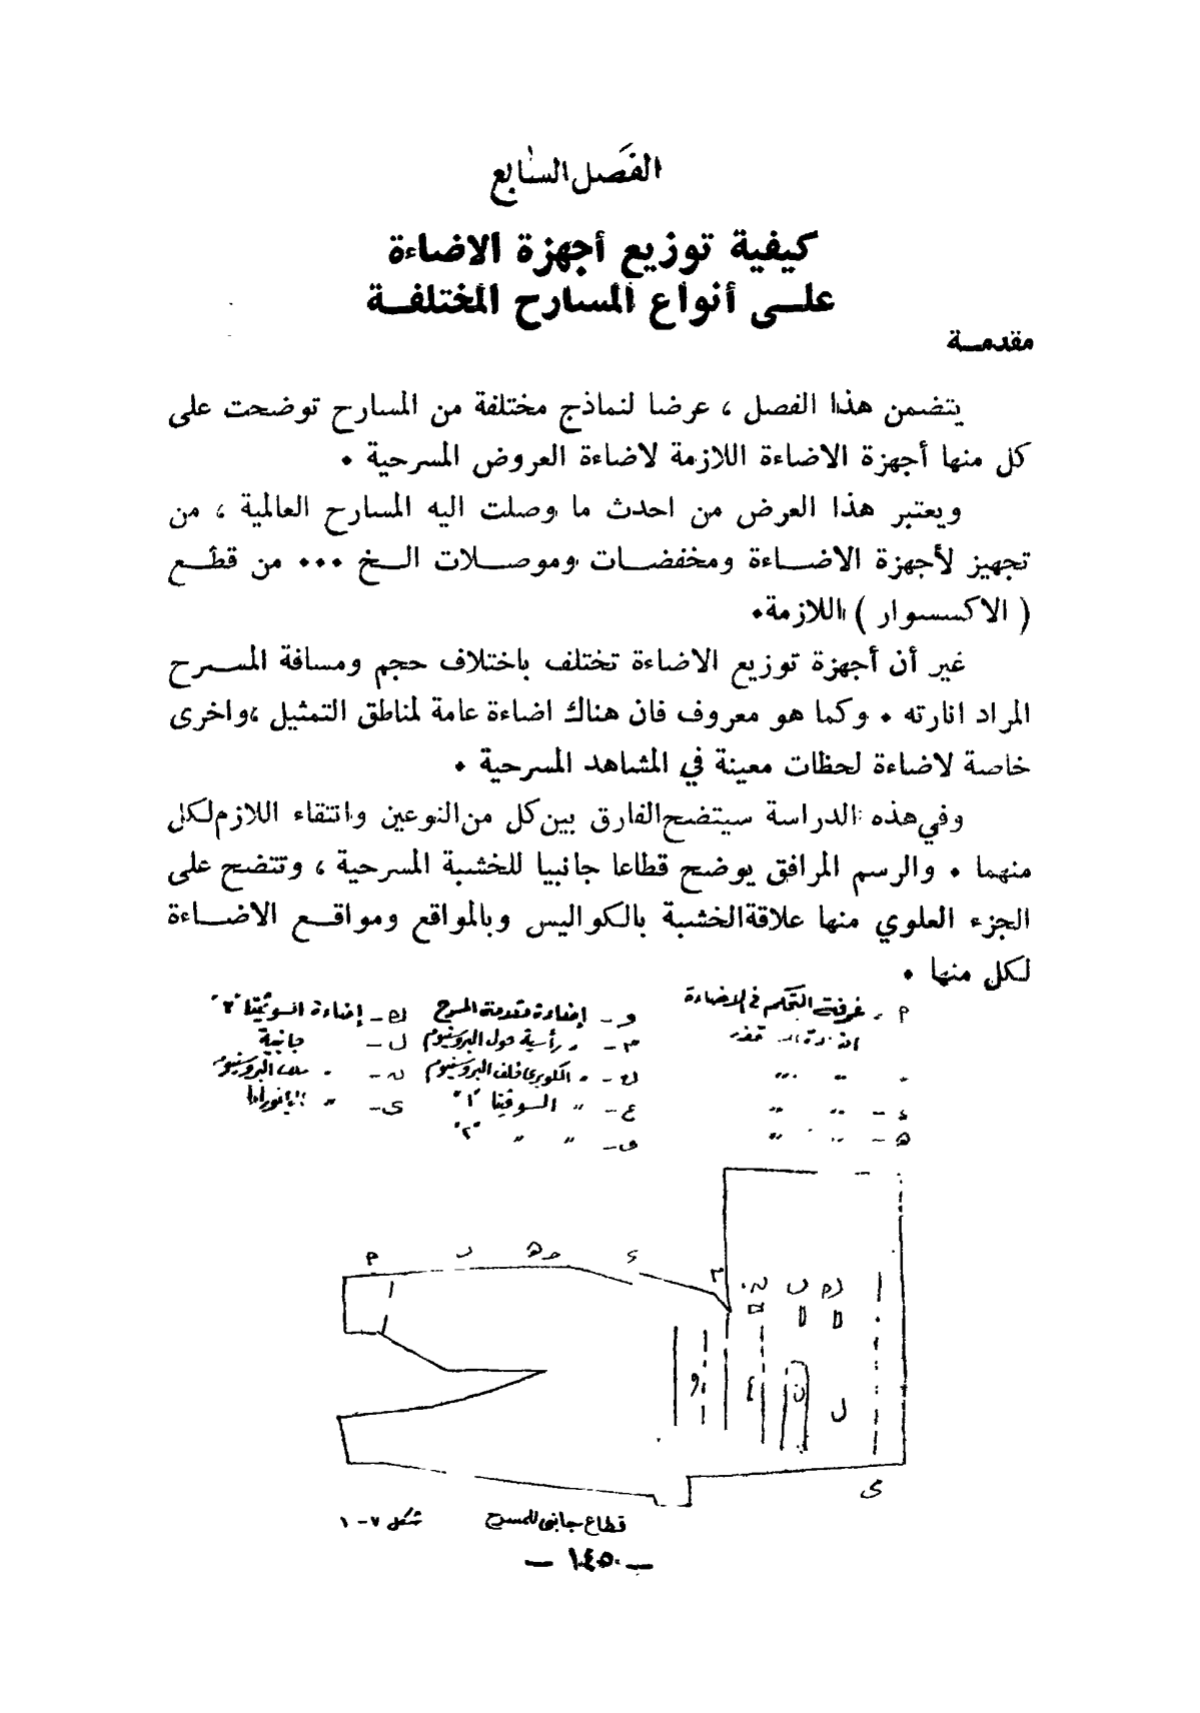 الفصل السابع
كيفية توزيع أجهزة الاضاءة
على أنواع المسارح المختلفة
مقدمة
يتضمن هذا الفصل ، عرضا لنماذج مختلفة من المسارح توضحت على
كل منها أجهزة الاضاءة اللازمة لاضاءة العروض المسرحية •
ويعتبر هذا العرض من احدث ما وصلت اليه المسارح العالمية ، من
تجهيز لأجهزة الاضاءة ومخفضات وموصلات الخ ••• من قطع
( الاكسسوار ) اللازمة•
غير أن أجهزة توزيع الاضاءة تختلف باختلاف حجم ومسافة المسرح
المراد انارته • وكما هو معروف فان هناك اضاءة عامة لمناطق التمثيل ،واخرى
خاصة لاضاءة لحظات معينة في المشاهد المسرحية •
وفي هذه الدراسة سيتضح الفارق بين كل من النوعين وانتقاء اللازم لكل
منهما • والرسم المرافق يوضح قطاعا جانبيا للخشبة المسرحية ، وتتضح على
الجزء العلوي منها علاقة الخشبة بالكواليس وبالمواقع ومواقع الاضاءة
لكل منها •
م - غرفة التحكم في الاضاءة
ء - " " "
ه - " " "
و - إضاءة مقدمة المسرح
م - " رأسية حول البروسنيوم
ع - " السوفيتا "١"
" " "٢"
إضاءة السوفيتا "٣"
ل - جانبية
ى - " البانوراما
م
ء
م
و
ع
ن
ل
ى
قطاع جانبى للمسرح
شكل ٧-١
— ١٤٥ —